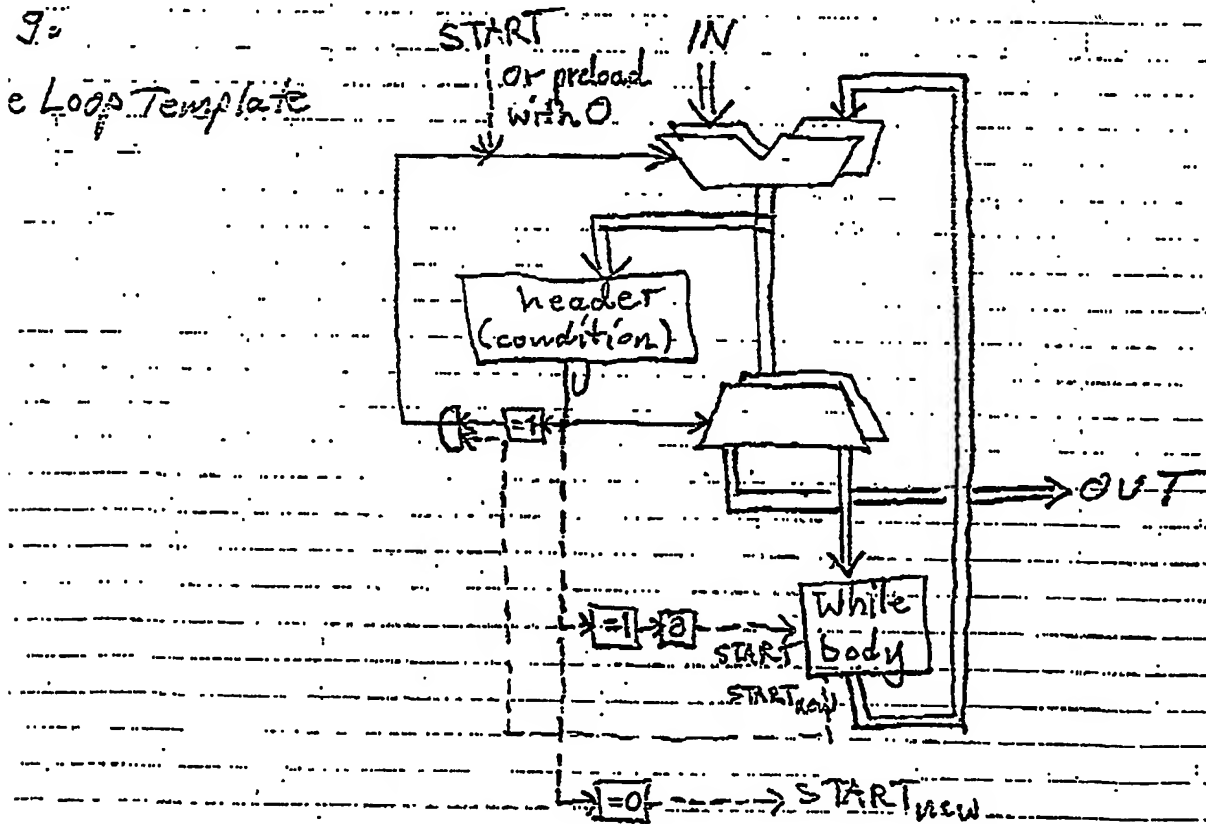 9:
e Loop Template
START
or preload
with 0
IN
header
(condition)
=1
OUT
=1
While
body
START
START new
=0
START new